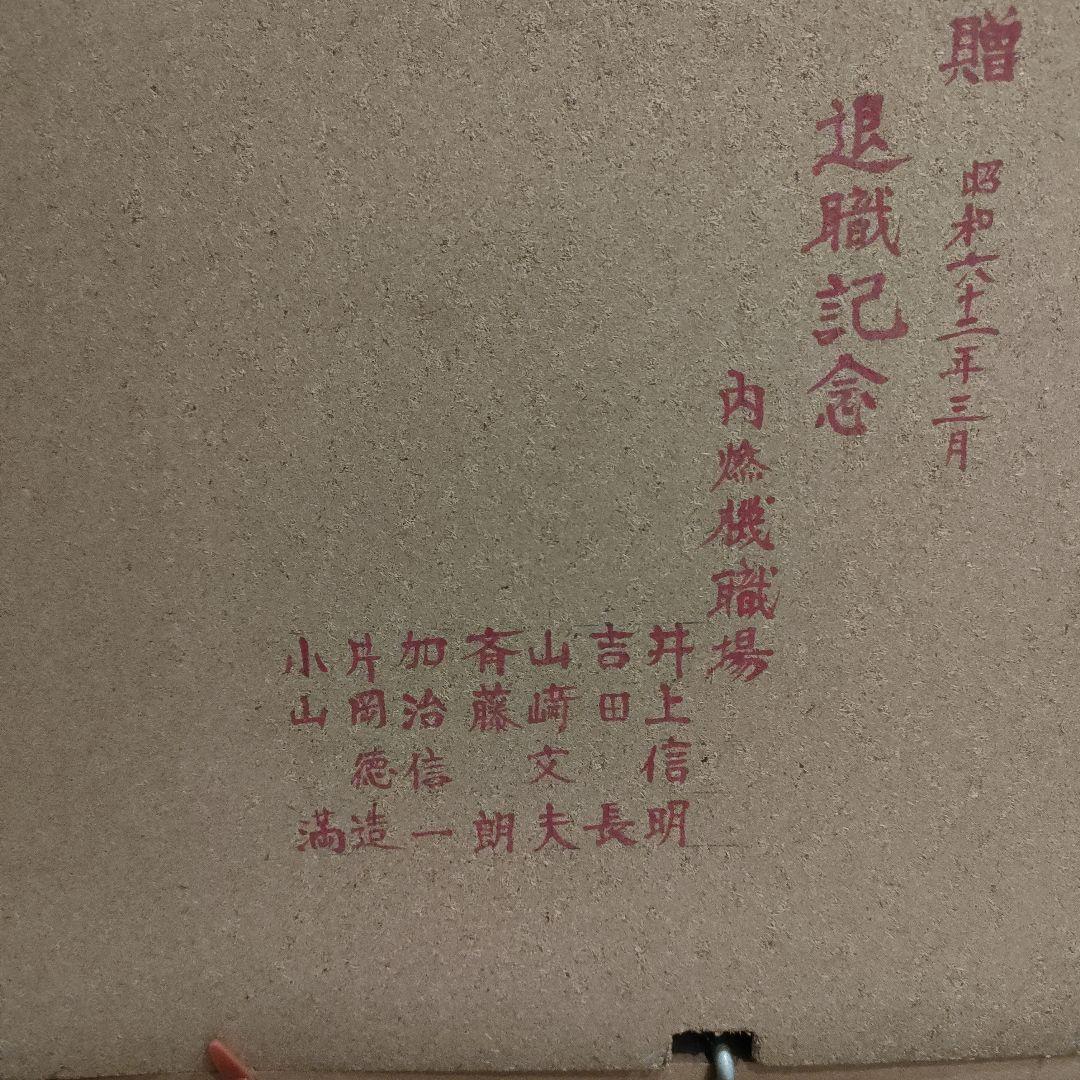 贈
昭和六十二年三月
退職記念
内燃機職場
井上信明
吉田長
山﨑文夫
斉藤朗
加治信一
片岡徳造
小山満